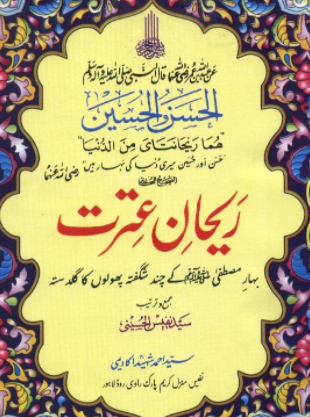 عن عبداللہ بن عمر رضی اللہ عنہما قال النبی صلی اللہ علیہ وآلہ وسلم
الحسن والحسین
"هما ریحانتای من الدنیا"
حسن اور حسین میری دنیا کی بہار ہیں" رضی اللہ عنہما
ریحانِ عترت
بہارِ مصطفیٰ ﷺ کے چند شگفتہ پھولوں کا گلدستہ
جمع و ترتیب
سید نفیس الحسینی
سید احمد شہید اکادمی
نفیس منزل کریم پارک راوی روڈ لاہور